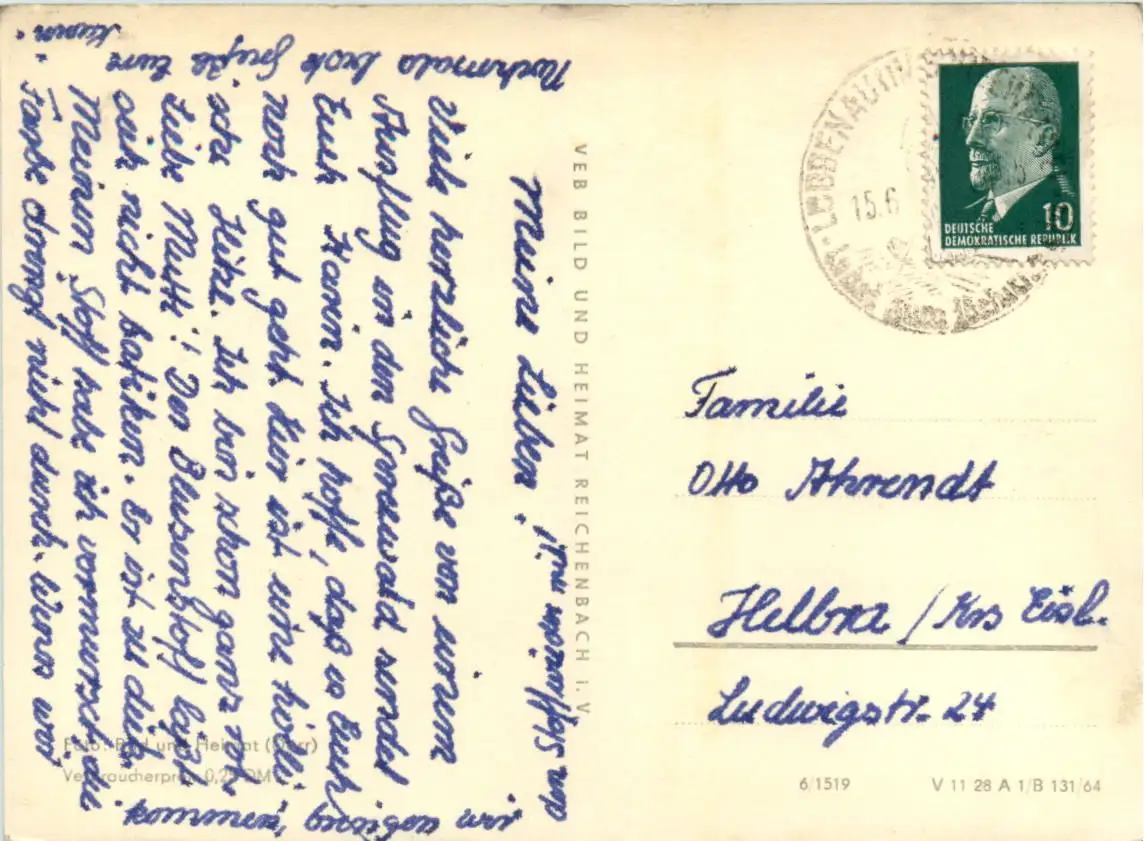 Meine Lieben!
Viele herzliche Grüße von einem
Ausflug in den Spreewald sendet
Euch Karin. Ich hoffe, daß es Euch
noch gut geht. Hier ist eine hölli-
sche Hitze. Ich bin schon ganz rot.
Liebe Mutti! Der Blusenstoff läßt
sich nicht batiken. Er ist zu dick.
Meinen Stoff habe ich vermurkst, die
Farbe drang nicht durch. Wenn wir
im
kommen,
Nochmals beste Grüße Eure
Karin.
VEB BILD UND HEIMAT REICHENBACH i. V.
Foto: Bild und Heimat (Darr)
Verbraucherpreis 0,25 DM
LÜBBENAU
15.6
DEUTSCHE
DEMOKRATISCHE REPUBLIK
10
Familie
Otto Ahrendt
Helbra / Krs Eisl.
Ludwigstr. 24
6/1519
V 11 28 A 1/B 131/64